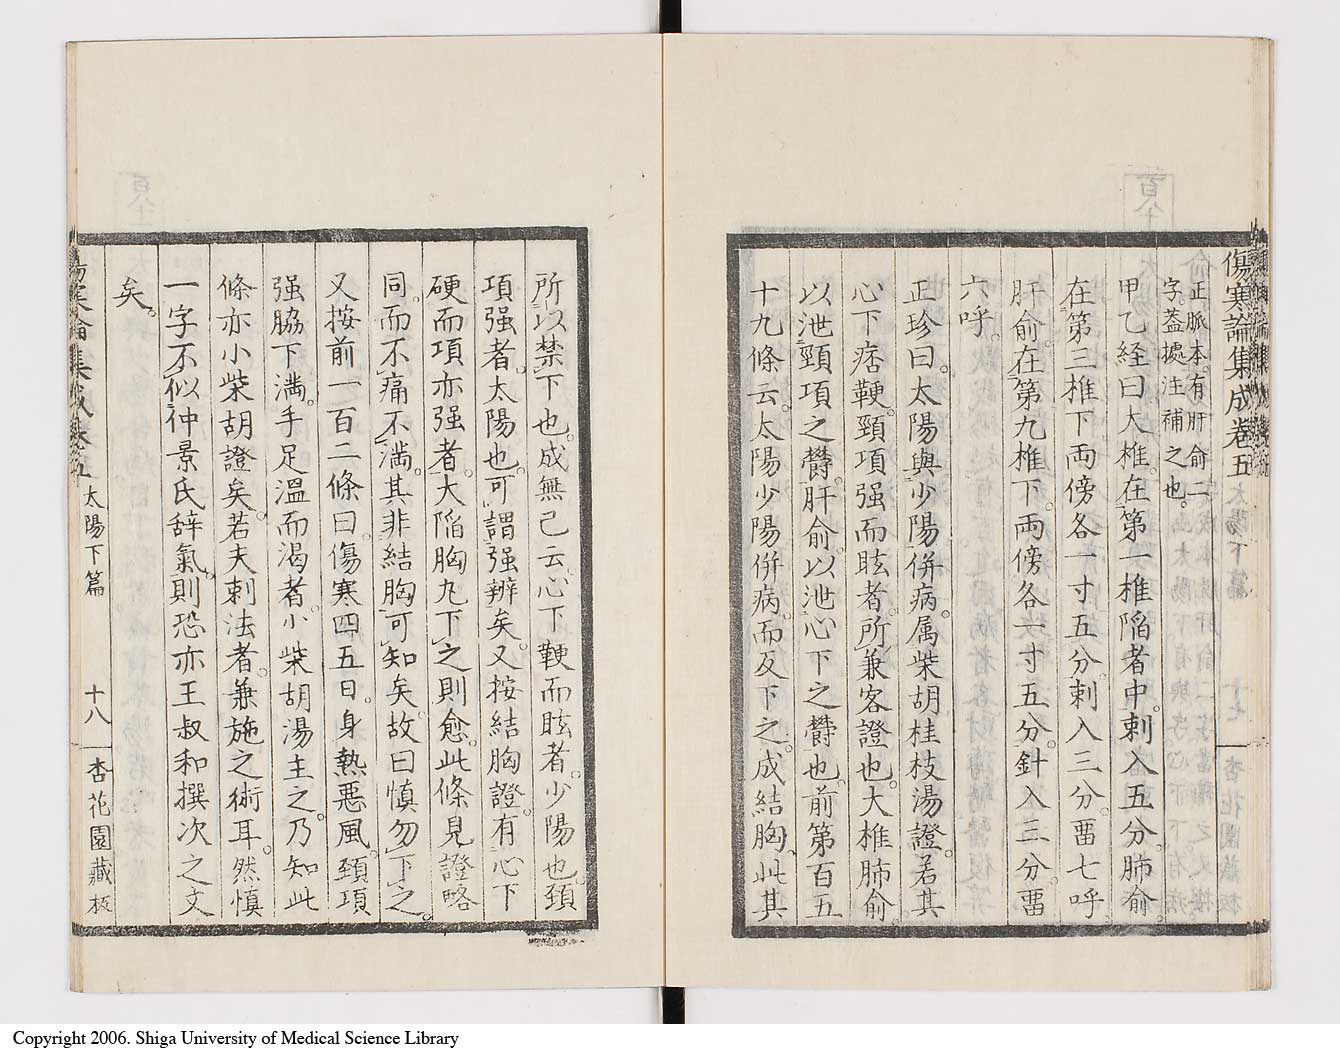 傷寒論集成卷五
太陽下篇
十七
杏花園藏板
正脈本有肝俞二
字蓋據注補之也。
甲乙経曰大椎在第一椎陷者中。刺入五分。肺俞
在第三椎下両傍各一寸五分。刺入三分。畱七呼。
肝俞在第九椎下。両傍各一寸五分。針入三分畱
六呼。
正珍曰。太陽與少陽併病。属柴胡桂枝湯證。若其
心下痞鞕。頸項强而眩者。所兼客證也。大椎肺俞。
以泄頸項之欝。肝俞。以泄心下之欝也。前第百五
十九條云。太陽少陽併病。而反下之。成結胸。此其
所以禁下也。成無己云。心下鞕而眩者。少陽也。頚
項强者。太陽也。可謂强辨矣。又按結胸證。有心下
硬而項亦强者。大陷胸丸下之則愈。此條見證略
同。而不痛不満。其非結胸可知矣。故曰慎勿下之。
又按前一百二條曰。傷寒四五日。身熱悪風。頚項
强脇下満。手足溫而渇者。小柴胡湯主之。乃知此
條亦小柴胡證矣。若夫刺法者。兼施之術耳。然慎
一字不似仲景氏辞氣。則恐亦王叔和撰次之文
矣。
傷寒論集成卷五
太陽下篇
十八
杏花園藏板
Copyright 2006. Shiga University of Medical Science Library